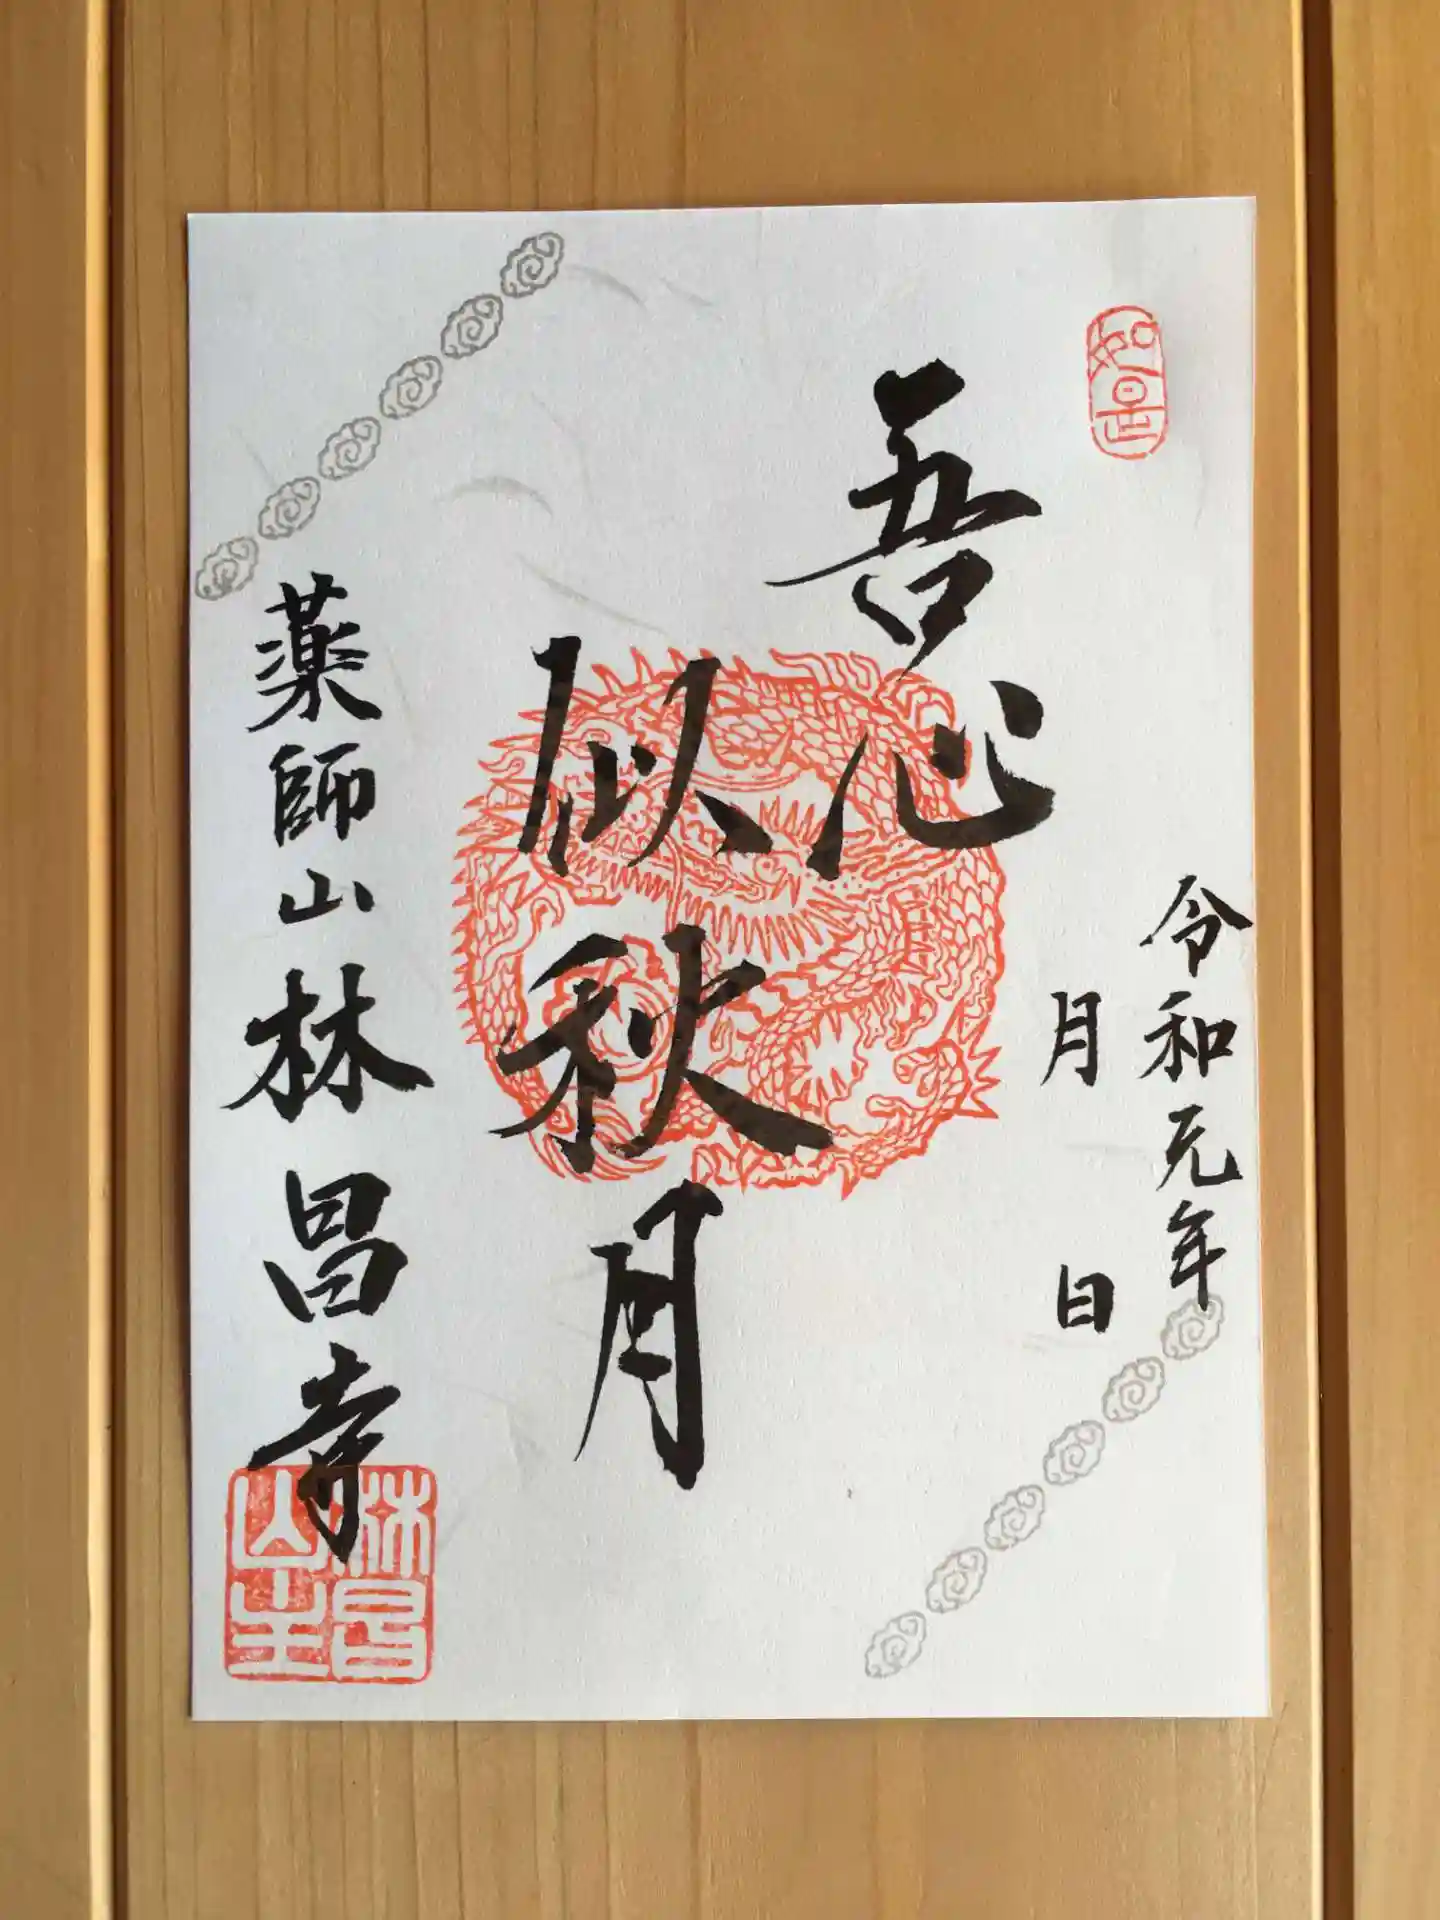 如是
令和元年
月 日
吾心
似秋月
薬師山林昌寺
林昌
山主